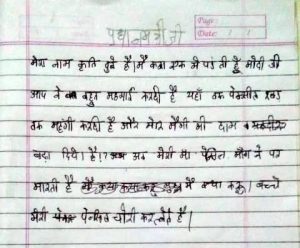 Page:
Date: / /
प्रधानमंत्री जी
मेरा नाम कृति दुबे है। मैं कक्षा एक में पढ़ती हूँ मोदी जी
आप ने बहुत महगाई करदी है यहाँ तक पेन्सील रबड़
तक महंगी करदी है और मेरे मैगी की दाम भी
बढ़ा दिये है!? अब मेरी माँ पेंसिल माँगने पर
मारती है मैं क्या करू। बच्चे
मेरी पेनसिल चोरी करलेते है।